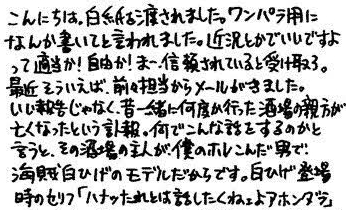 こんにちは。白紙を渡されました。ワンパラ用に
なんか書いてと言われました。近況とかでいいですよ
って適当か!自由か!まー信頼されていると受け取る。
最近そういえば、前々担当からメールがきました。
いい報告じゃなく、昔一緒に何度か行った酒場の親方が
亡くなったという訃報。何でこんな話をするのかと
言うと、その酒場の主人が、僕のホレこんだ男で
海賊白ひげのモデルだからです。白ひげ登場
時のセリフ「ハナッたれとは話したくねェよアホンダラ」